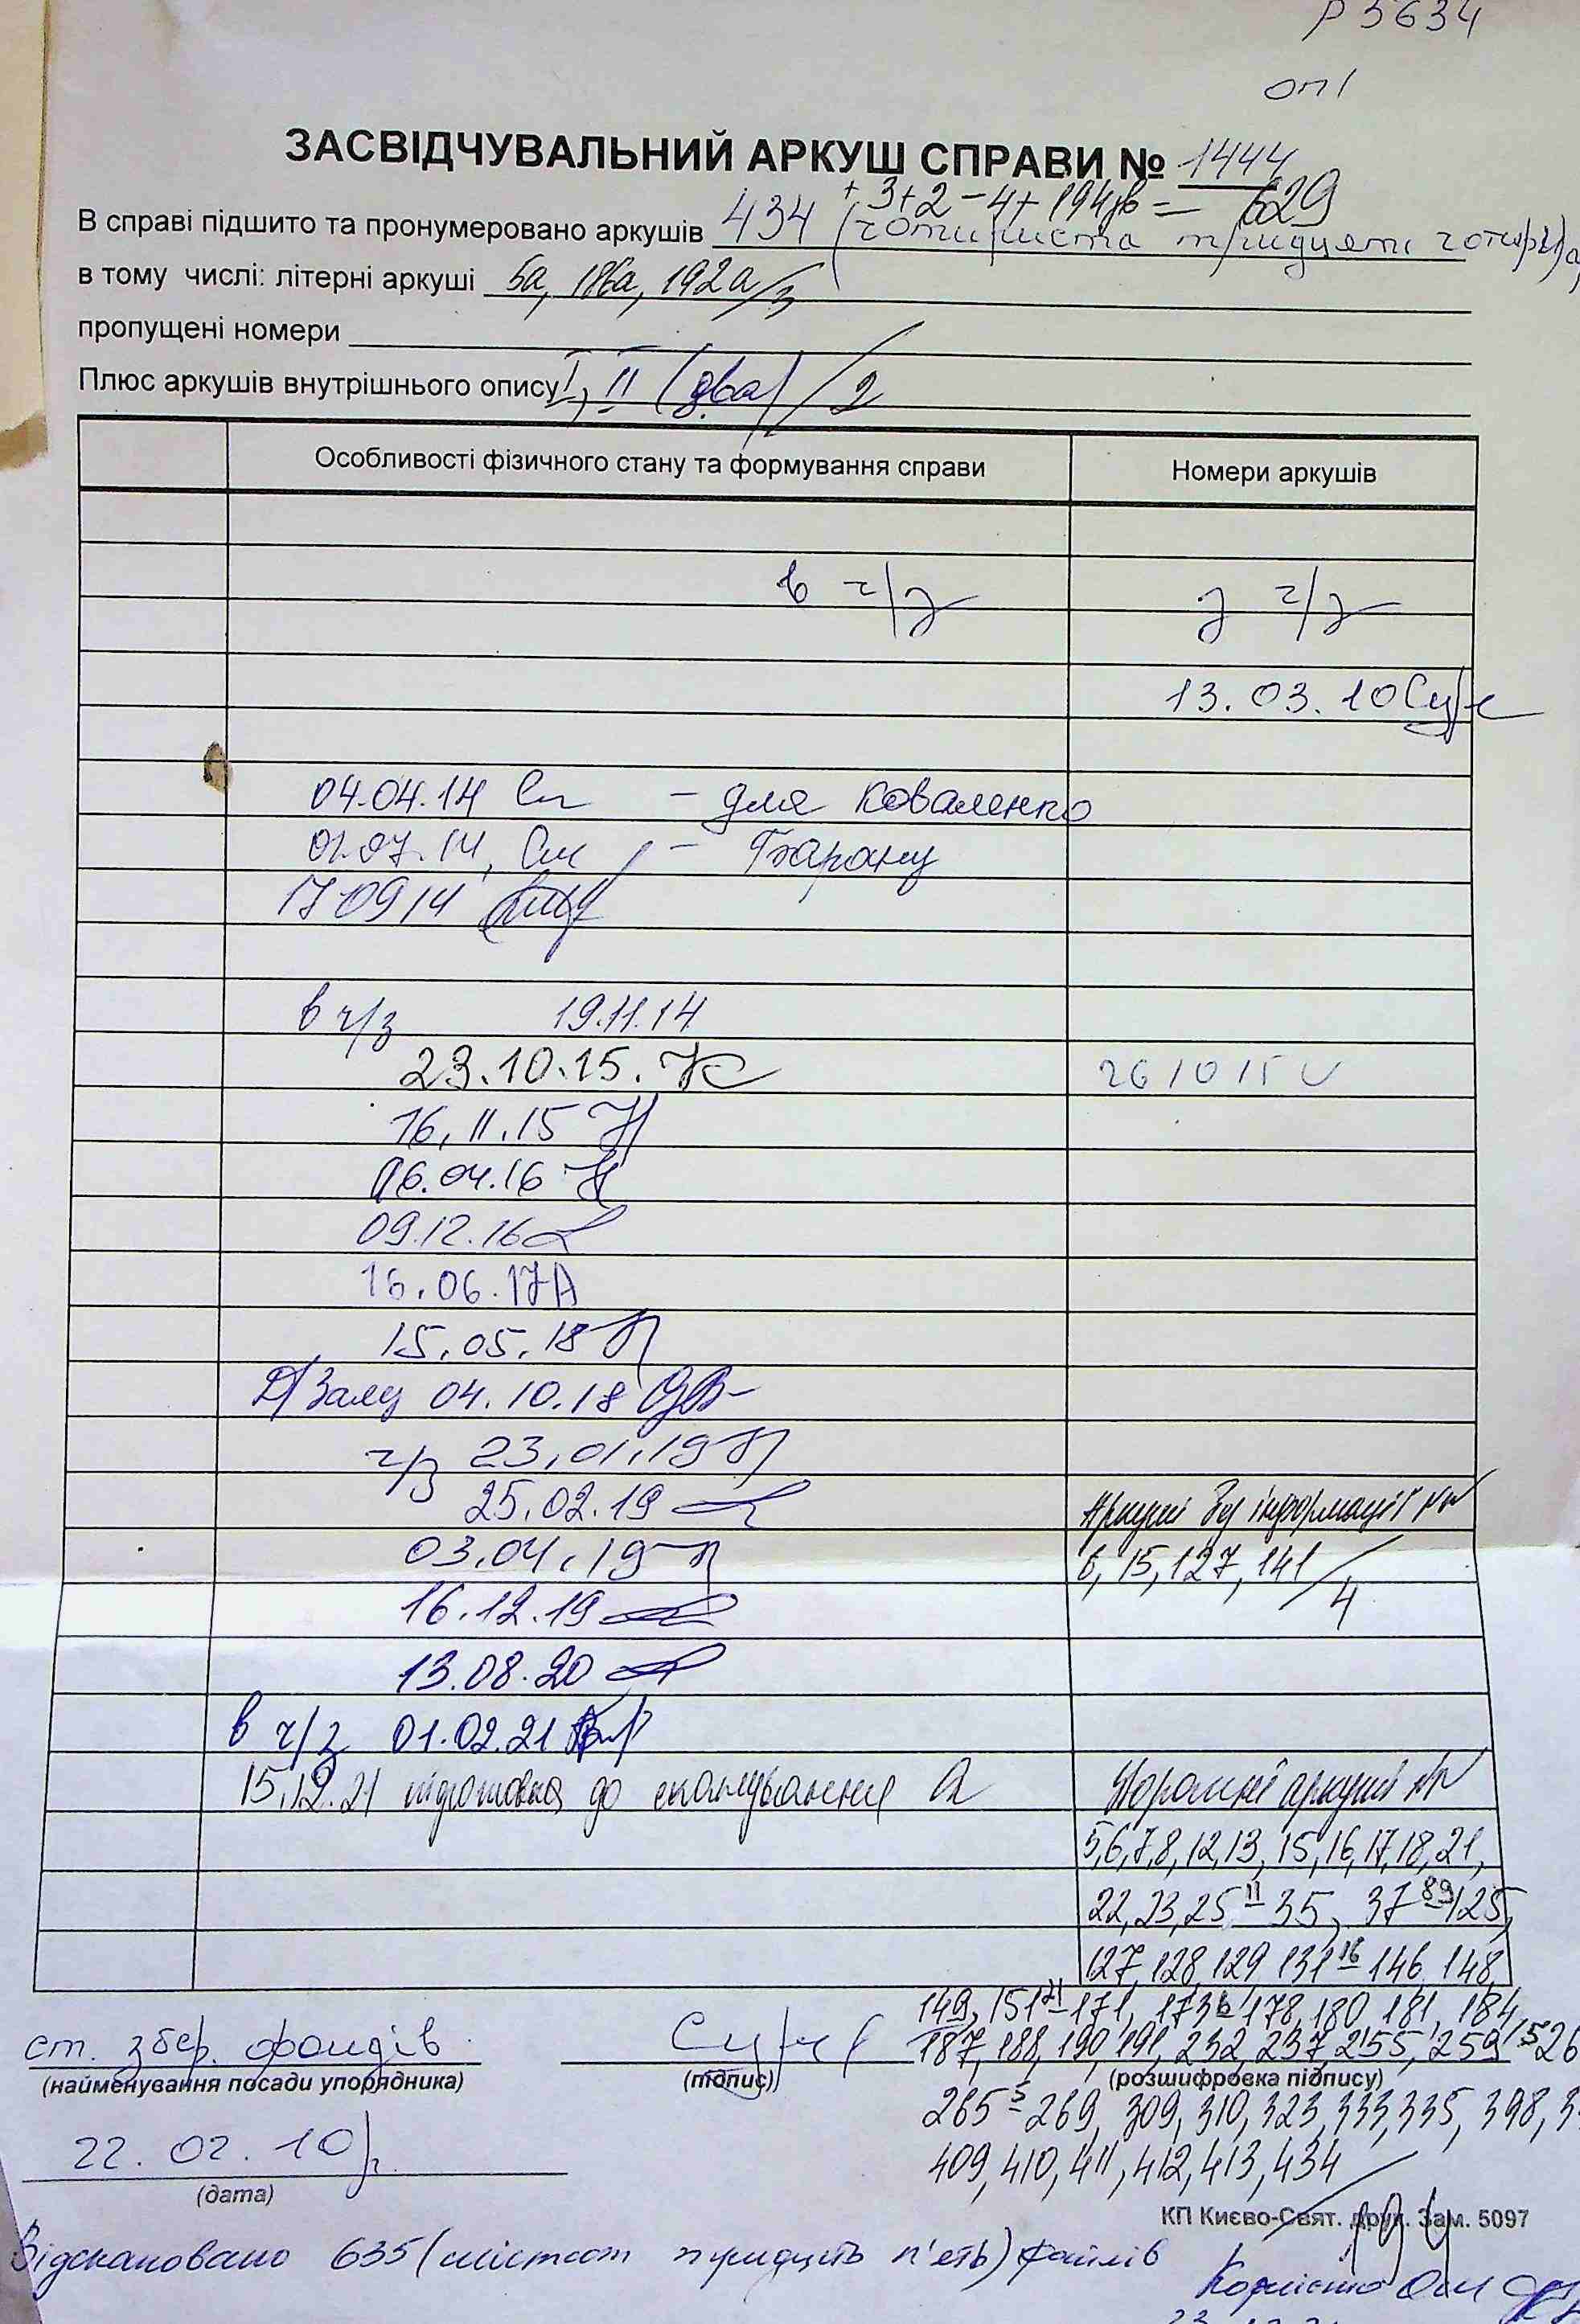 Р 5634
оп 1
ЗАСВІДЧУВАЛЬНИЙ АРКУШ СПРАВИ № 1444
+ 3+2-4+194зв = 629
В справі підшито та пронумеровано аркушів 434 (чотириста тридцять чотири) а,
в тому числі: літерні аркуші 5а, 186а, 192а/3
пропущені номери
Плюс аркушів внутрішнього опису I, II (два) / 2
Особливості фізичного стану та формування справи Номери аркушів
в ч/з з ч/з
13.03.10
04.04.14 - для Коваленко
01.07.14, - Барану
17 09 14
в ч/з 19.11.14
23.10.15. 26 10 15
16.11.15
06.04.16
09.12.16
16.06.17
15.05.18
Д/Залу 04.10.18
ч/з 23.01.19
25.02.19 Аркуші без інформації №№
03.04.19 6, 15, 127, 141 / 4
16.12.19
13.08.20
в ч/з 01.02.21
15.12.21 підготовка до сканування аркуші №№
5,6,7,8,12,13,15,16,17,18,21,
22,23,25 11 - 35, 37 89 - 125,
127,128,129 131 16 - 146 148,
149, 151 21 - 171, 173 6 - 178, 180 181, 184
187, 188, 190, 191, 232, 237, 255, 259 5 26
ст. збер. фондів
(найменування посади упорядника) (підпис) (розшифровка підпису)
265 5 - 269, 309, 310, 323, 333, 335, 398, 3
22.02.10р. 409, 410, 411, 412, 413, 434
(дата) 194
КП Києво-Свят. друк. Зам. 5097
Відскановано 635 (шістсот тридцять п'ять) файлів